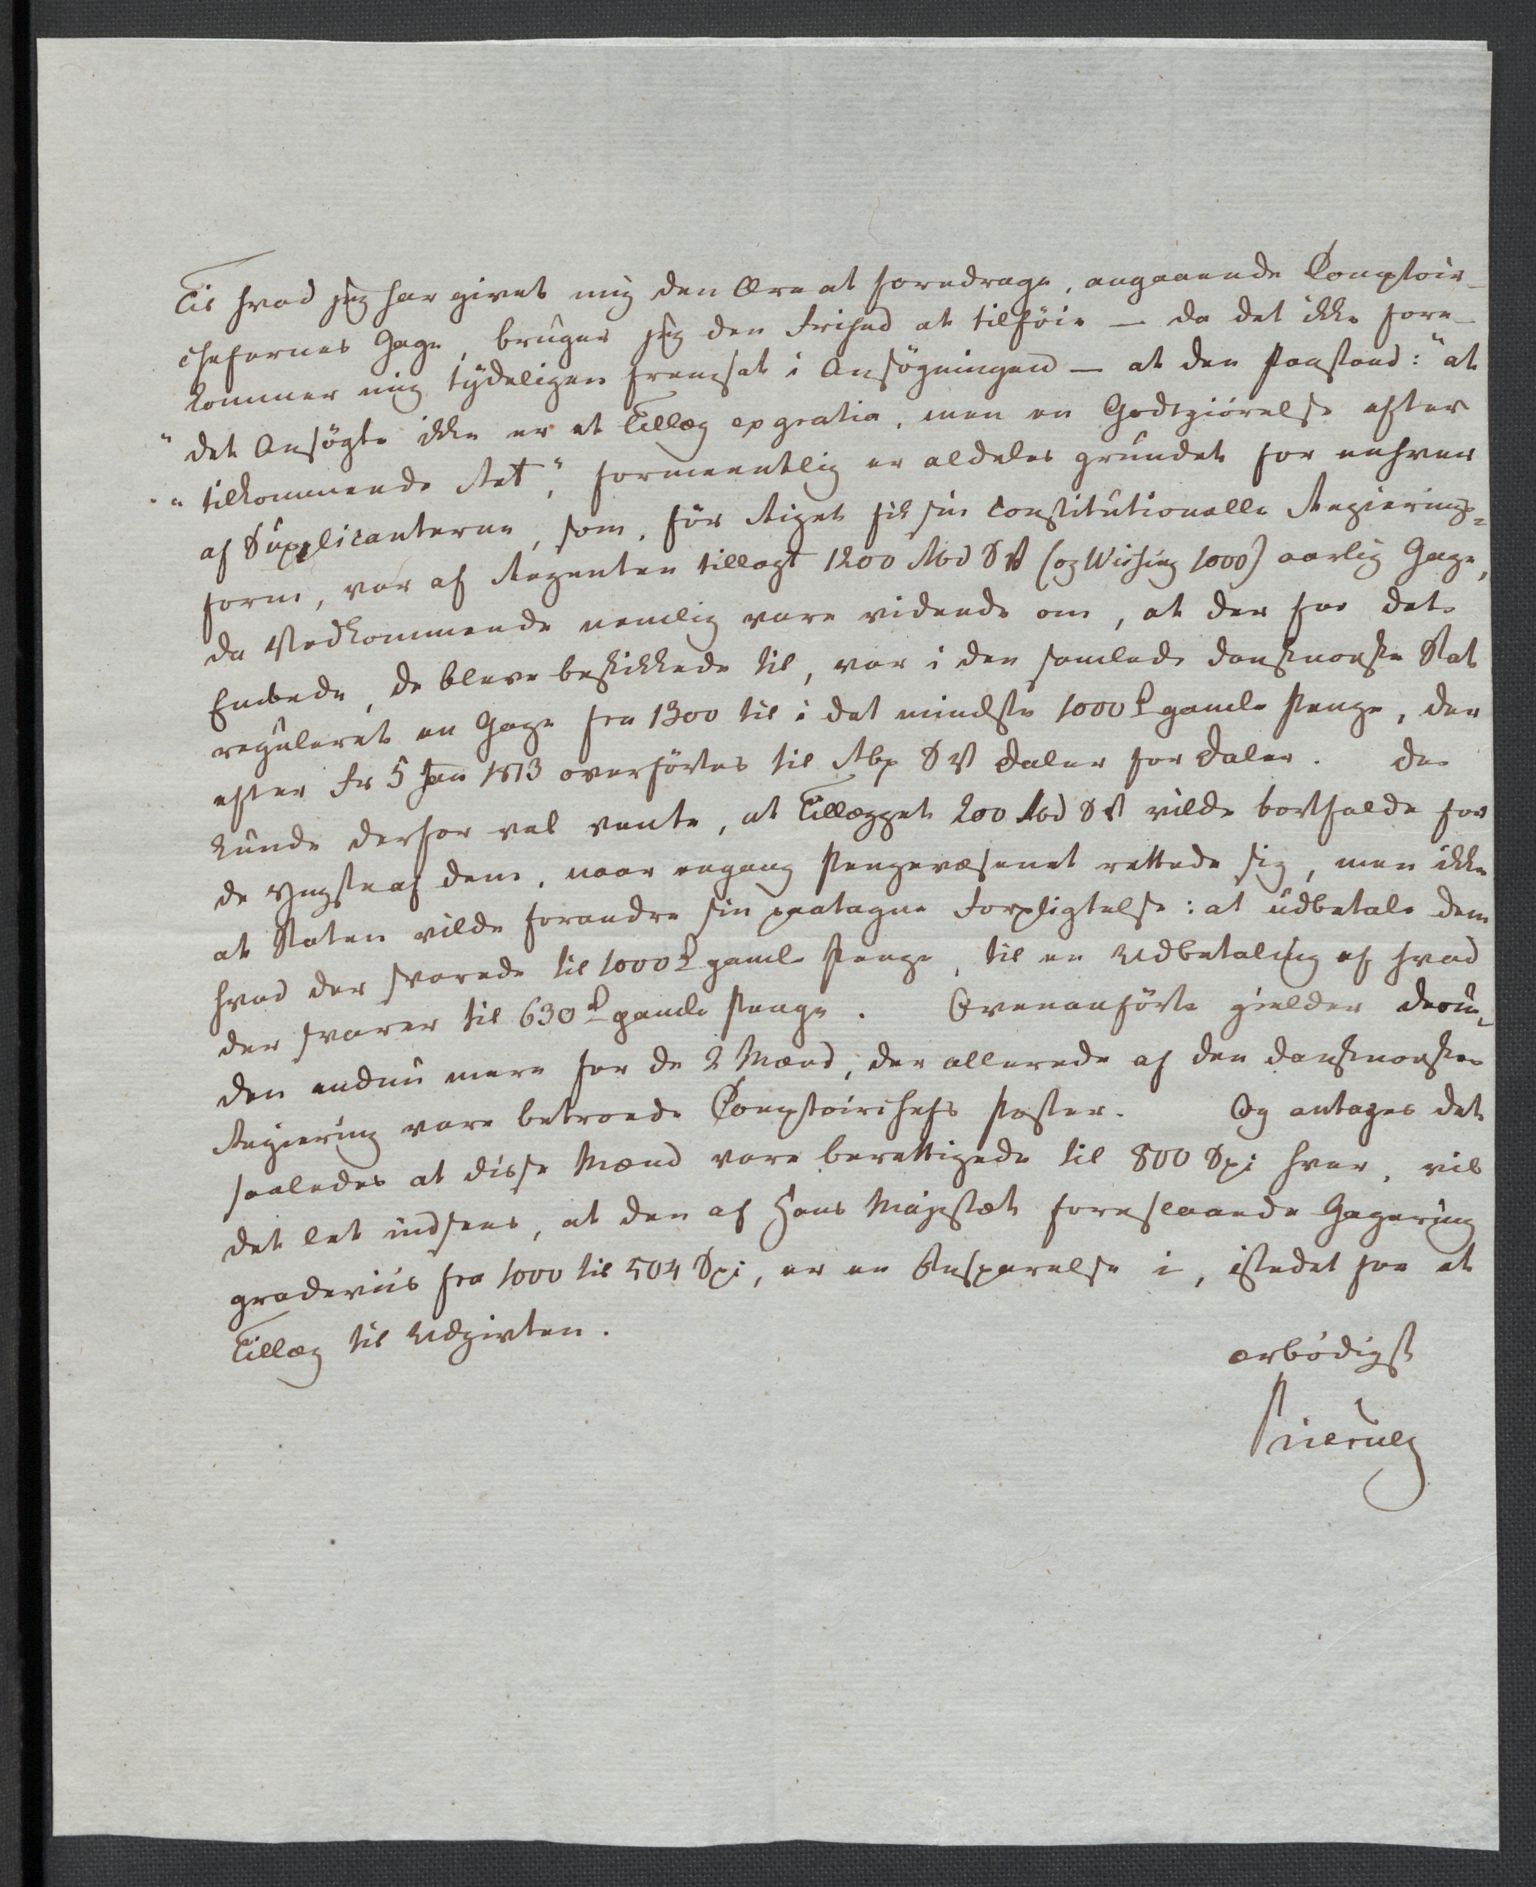 Til hvad jeg har givet mig den Ære at foredrage, angaaende Comptoir-
chefernes Gage, bruger jeg den Frihed at tilföie — da det ikke fore-
kommer mig tydeligen fremsat i Ansögningen — at den Paastand: "at
"det Ansögte ikke er et Tillæg ex gratia, men en Godtgiörelse efter
"tilkommende Ret", formeentlig er aldeles grundet for enhver
af Supplicanterne, som, för Riget fik sin constitutionelle Regierings-
form, var af Regenten tillagt 1200 Rbd S V (og Wissing 1000) aarlig Gage,
da Vedkommende nemlig vare vidende om, at der for det
Embede, de bleve beskikkede til, var i den samlede dansknorske Stat
reguleret en Gage fra 1300 til i det mindste 1000 gamle Penge, der
efter Fr 5 Jan 1813 overförtes til Rbp S V Daler for Daler. De
kunde derfor vel vente, at Tillægget 200 Rbd S V vilde bortfalde for
de yngste af dem, naar engang Pengevæsenet rettede sig, men ikke
at Staten vilde forandre sin paatagne Forpligtelse: at udbetale dem
hvad der svarede til 1000 gamle Penge, til en Udbetaling af hvad
der svarer til 630 gamle Penge. Ovenanförte gielder desu-
den endnu mere for de 2 Mænd, der allerede af den dansknorske
Regiering vare betroede Comptoirchefs Poster. Og antages det
saaledes at disse Mænd vare berettigede til 800 Spi hver, vil
det let indsees, at den af Hans Majestæt foreslaaede Gagering
gradeviis fra 1000 til 504 Spi, er en Besparelse i, istedet for et
Tillæg til Udgivten.
ærbödigst